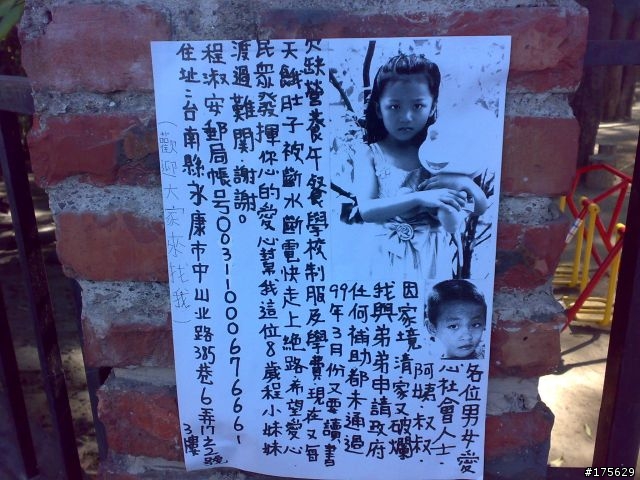 各位男女愛
心社會人士.
阿姨.叔叔
因家境清家又破爛
我與弟弟申請政府
任何補助都未通過
99年3月份又要讀書
欠缺營養午餐學校制服及學費現在又每
天餓肚子被斷水斷電快走上絕路希望愛心
民眾發揮你心的愛心幫我這位8歲程小妹妹
渡過難關.謝謝。
程淑安郵局帳号00311000676661
住址:台南縣永康市中山北路385巷6弄號3樓
(歡迎大家來找我)
#175629